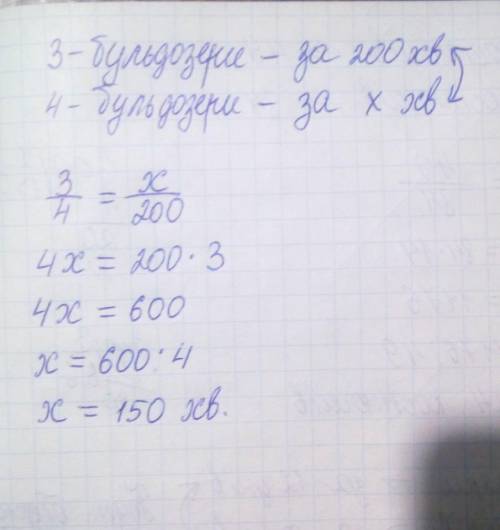 3 - бульдозери - за 200 хв
4 - бульдозери - за х хв
3/4 = х/200
4х = 200 · 3
4х = 600
х = 600 : 4
х = 150 хв.